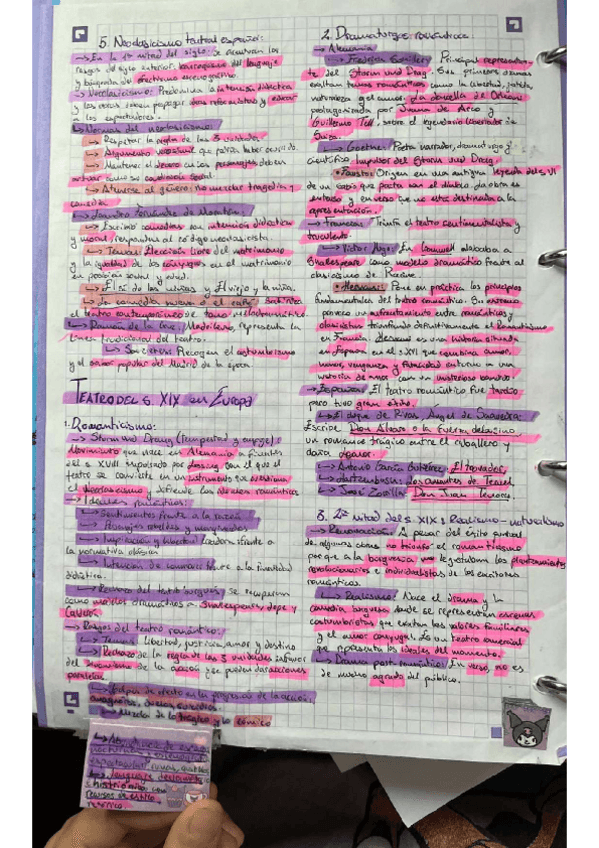 5. Neoclasicismo teatral español:
↳ En la 1ª mitad del siglo: se acentúan los
rasgos del siglo anterior, del lenguaje
y búsqueda del efectismo escenográfico
↳ Neoclasicismo: Predomina la intención didáctica
y las obras deben propagar ideas reformistas y educar
a los espectadores.
↳ Normas del neoclasicismo:
↳ Respetar la regla de las 3 unidades
↳ Argumento verosímil que pueda haber ocurrido
↳ Mantener el decoro: los personajes deben
actuar como su condición social
↳ Atenerse al género: no mezclar tragedia y
comedia
↳ Leandro Fernández de Moratín:
↳ Escribió comedias con intención didáctica
y moral, responden al código neoclasicista.
↳ Temas: Elección libre del matrimonio
y la igualdad de los cónyuges en el matrimonio
en posición social y edad.
↳ El sí de las niñas y El viejo y la niña.
↳ La comedia nueva o el café: Satiriza
el teatro contemporáneo de tono melodramático
↳ Ramón de la Cruz: Madrileño, representa la
línea tradicional del teatro.
↳ Sainetes: Recogen el costumbrismo
y el sabor popular del Madrid de la época
TEATRO DEL S. XIX en Europa
1. Romanticismo:
↳ Sturm und Drang (Tempestad y empuje):
Movimiento que nace en Alemania a finales
del s XVIII impulsado por Lessing con el que el
teatro se convierte en un instrumento que cuestiona
el neoclasicismo y defiende los ideales románticos
↳ Ideales románticos:
↳ Sentimientos frente a la razón
↳ Personajes rebeldes y marginados
↳ Inspiración y libertad creadora frente a
la normativa clásica
↳ Intención de conmover frente a la finalidad
didáctica.
↳ Rechazo del teatro burgués, se recuperan
como modelos dramáticos a Shakespeare, Lope y
Calderón
↳ Rasgos del teatro romántico:
↳ Temas: libertad, justicia, amor y destino
↳ Rechazo de la regla de las 3 unidades a favor
del dinamismo de la acción que puede dar acciones
paralelas
↳ Golpes de efecto en la progresión de la acción:
anagnórisis, duelos, suicidios.
↳ Mezcla de lo trágico y lo cómico
recursos de estilo
2. Dramaturgos románticos
↳ Alemania:
↳ Frederich Schiller: Principal representan-
te del Sturm und Drag. Sus primeros dramas
exaltan temas románticos como la libertad, justicia,
naturaleza y el amor. La doncella de Orleans
protagonizada por Juana de Arco y
Guillermo Tell, sobre el legendario libertador de
Suiza.
↳ Goethe: Poeta narrador, dramaturgo y
científico impulsor del Sturm und Drag.
• Fausto: Origen en una antigua leyenda del s. VI
de un sabio que pacta con el diablo. La obra es
extensa y en verso que no está destinada a la
representación.
↳ Francia: Triunfa el teatro sentimentalista y
truculento.
↳ Victor Hugo: En Cromwell alababa a
Shakespeare como modelo dramático frente al
clasicismo de Racine.
• Hernani: Pone en práctica los principios
fundamentales del teatro romántico. Su estreno
provocó un enfrentamiento entre románticos y
clasicistas triunfando definitivamente el Romanticismo
en Francia. Hernani es una historia situada
en España en el s. XVI que combina amor,
honor, venganza y fatalidad entorno a una
historia de amor con un misterioso bandido.
↳ España: El teatro romántico fue tardío
pero tuvo gran éxito.
↳ El duque de Rivas, Ángel de Saavedra:
Escribe Don Álvaro o la Fuerza del sino
un romance trágico entre el caballero y
doña Leonor.
↳ Antonio García Gutiérrez: El trovador.
↳ Hartzenbusch: Los amantes de Teruel
↳ José Zorrilla: Don Juan Tenorio.
3. 2ª mitad del s. XIX: Realismo-naturalismo
↳ Renovación: A pesar del éxito puntual
de algunas obras no triunfó el romanticismo
porque a la burguesía no le gustaban los planteamientos
revolucionarios e individualistas de los escritores
románticos.
↳ Realismo: Nace el drama y la
comedia burguesa donde se representan escenas
costumbristas que exaltan los valores familiares
y el amor conyugal. Es un teatro comercial
que representa los ideales del momento.
↳ Drama post romántico: En verso, no es
de mucho agrado del público.